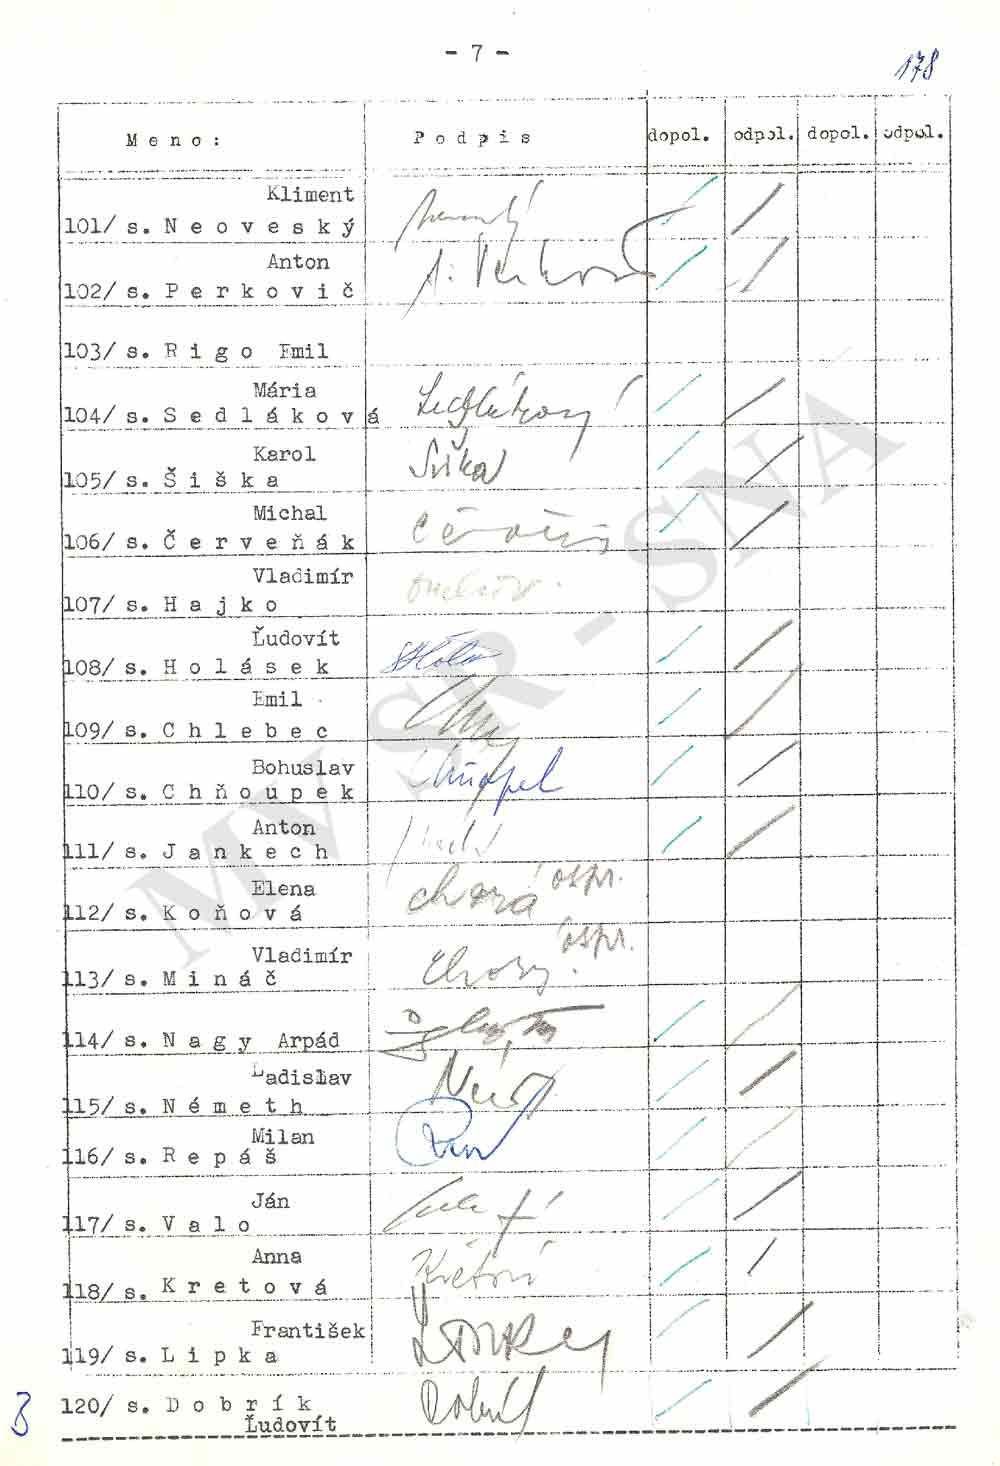 - 7 -
178
M e n o :
P o d p i s
dopol.
odpol.
dopol.
odpol.
Kliment
101/ s. N e o v e s k ý
Anton
102/ s. P e r k o v i č
103/ s. R i g o Emil
Mária
104/ s. S e d l á k o v á
Sedláková
Karol
105/ s. Š i š k a
Šiška
Michal
106/ s. Č e r v e ň á k
Vladimír
107/ s. H a j k o
Ľudovít
108/ s. H o l á s e k
Emil
109/ s. C h l e b e c
Bohuslav
110/ s. C h ň o u p e k
Anton
111/ s. J a n k e c h
Elena
112/ s. K o ň o v á
chorá ospr.
Vladimír
113/ s. M i n á č
chorý ospr.
114/ s. N a g y Arpád
Ladislav
115/ s. N é m e t h
Milan
116/ s. R e p á š
Ján
117/ s. V a l o
Anna
118/ s. K r e t o v á
František
119/ s. L i p k a
120/ s. D o b r í k
Ľudovít
3
MV SR - SNA